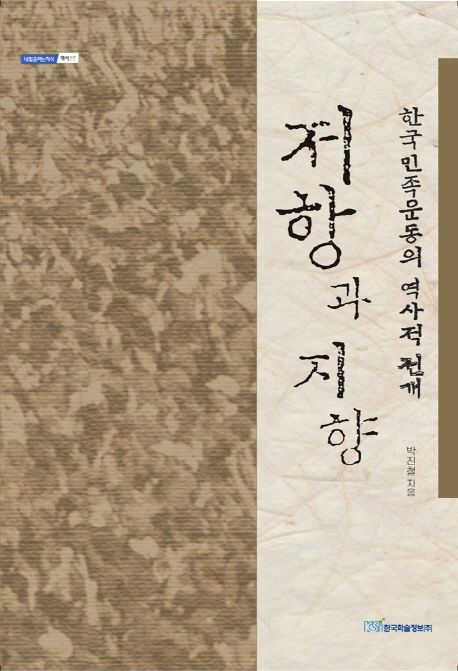 내일을여는지식 역사27
한국민족운동의 역사적 전개
저항과 지향
박진철 지음
한국학술정보㈜